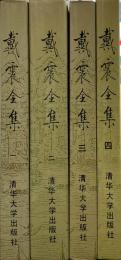 戴震全集
一
清华大学出版社
戴震全集
二
清华大学出版社
戴震全集
三
清华大学出版社
戴震全集
四
清华大学出版社